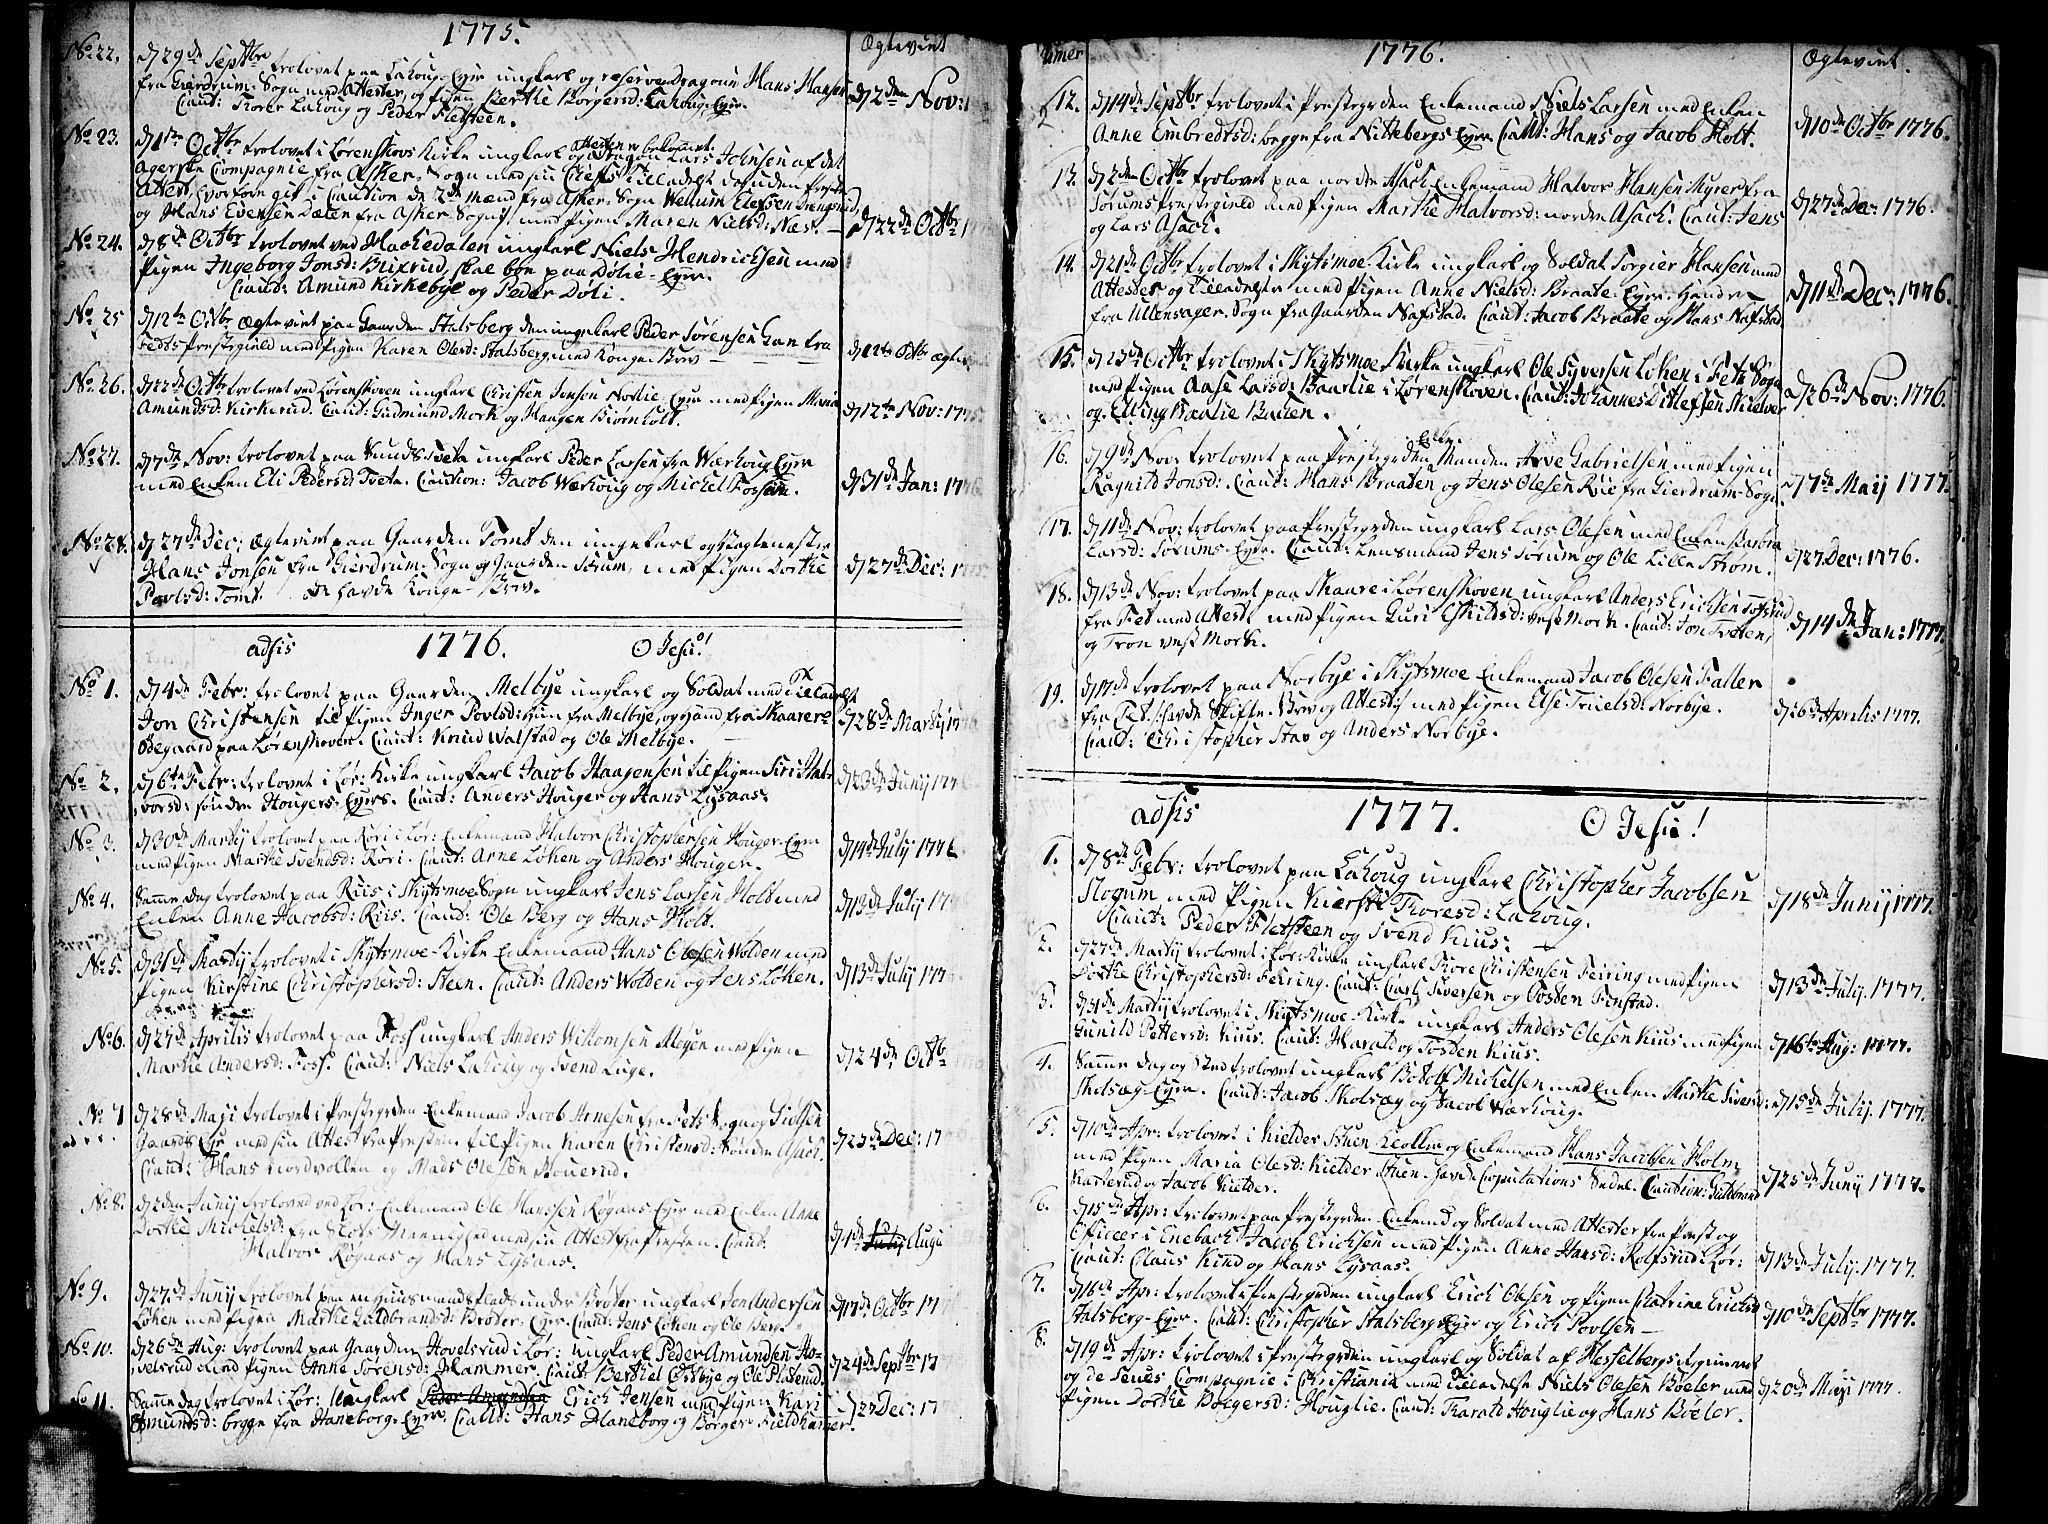 1775.
Ægteviet
No. 22. d 29de Septbr trolovet paa Lahoug-Eyer ungkarl og reserve dragoun Hans Hansen
fra Gierdrum-Sogn med Attester, og pigen Berthe Børgersd: Lahoug-Eyer.
Caut: Thorer Lahoug og Peder Fletsteen.
d 2den Nov: 1
No. 23. d 1ste Octbr trolovet i Lørenskovs Kirke ungkarl og dragon Lars Johnsen af det
Attesten er bekommet.
Agerske Compagnie fra Asker-Sogn med sin Chefs Tilladelse desuden Præstens
Attest, hvorfore gik i Caution de 2de mænd fra Asker-Sogn Wellum Elefsen
og Hans Evensen Dælen fra Asker-Sogn, med pigen Maren Nielsd: Næs.
d 22de Octbr 1
No. 24. d 8de Octbr trolovet ved Hackedalen ungkarl Niels Hendrichsen med
Pigen Ingeborg Jonsd: Bixrud, skal boe paa Dølie-Eyer.
Caut: Amund Kirkebye og Peder Døli.
No. 25 d 12te Octbr Ægteviet paa Gaarden Stalsberg den ungkarl Peder Sørensen Gan fra
Feds Præstegield med Pigen Karen Olesd: Stalsberg med Konge-Brev
d 12te Octbr Ægte
No. 26. d 22de Octbr trolovet ved Lørenskoven ungkarl Christen Jensen Nordlie-Eyer med pigen Maria
Amundsd: Kirkerud. Caut: Gudmund Mork og Haagen Biørnholt.
d 12te Nov: 1775
No. 27. d 7de Nov: trolovet paa Knuds Tveta ungkarl Peder Larsen fra Wærhoug Eyer
med Enken Eli Pedersd: Tveta. Caution: Jacob Wærhoug og Michel Fossum.
d 31de Jan: 1776
No. 28. d 27de Dec: Ægteviet paa Gaarden Tomt den ungekarl og
Hans Jonsen fra Gierdrum-Sogn og Gaarden Sørum, med Pigen Dorthe
Povlsd: Tomt. de havde Konge-Brev.
d 27de Dec: 1775
adsis 1776. O Jesu!
No. 1. d 4de Febr: trolovet paa Gaarden Melbye ungkarl og Soldat med Tilladelse
Jon Christensen til Pigen Inger Povlsd: hun fra Melbye, og hand fra Skaarer-
Ødegaard paa Lørenskoven. Caut: Knud Walstad og Ole Melbye.
d 28de Martij 17
No. 2. d 6te Febr: trolovet i Lør: Kirke ungkarl Jacob Haagensen til pigen Siri Hal-
vorsd: sønden Hougers-Eyer. Caut: Anders Houger og Hans Lysaas.
d 23de Junij 1776
No. 3. d 30de Martij trolovet paa Røri i Lør: Enkemand Halvor Christophersen Houger-Eyer
med pigen Marthe Svendsd: Røri. Caut: Arne Løken og Anders Hougen.
d 14de Julij 1776
No. 4. Samme Dag trolovet paa Riis i Skytsmoe-Sogn ungkarl Jens Larsen Holt med
Enken Anne Jacobsd: Riis. Caut: Ole Berg og Hans Holt.
d 13de Julij 177
No. 5. d 31de Martij trolovet i Skytsmoe-Kirke Enkemand Hans Olesen Wolden med
Pigen Kirstine Christophersd: Steen. Caut: Anders Wolden og Jens Løken.
d 13de Julij 177
No. 6. d 27de Aprilis trolovet paa Foss ungkarl Anders Wilkomsen Mogen med pigen
Marthe Andersd: Foss. Caut: Niels Lahoug og Svend Luge.
d 24de Octbr
No. 7 d 28de Maji trolovet i Præstegrden Enkemand Jacob Arnesen fra Fets Sogn og
Gaards Eyer med sin Attest fra Præsten, til Pigen Karen Christensd: Søndre Asach.
Caut: Hans Nordvollen og Mads Olesen Stouerud.
d 23de Dec: 17
No. 8. d 2den Junij trolovet ved Lør: Enkemand Ole Hanssen Røgaas Eyer med Enken Anne
Dorthe Michelsd: fra Slots Meenighed med sin Attest fra Præsten. Caut:
Halvor Røgaas og Hans Lysaas.
d 1de Julij Augu
No. 9. d 27de Junij trolovet paa en Huusmands plads under Brøter ungkarl Jon Andersen
Løken med pigen Marthe Guldbrandsd: Brøter-Eyer. Caut: Jens Løken og Ole Berg.
d 17de Octbr 17
No. 10. d 26de Aug: trolovet paa Gaarden Hovelsrud i Lør: ungkarl Peder Amundsen Ho-
velsrud med pigen Anne Sørensd: Hammer. Caut: Berthel Østbye og Ole Flaterud.
d 24de Septbr 17
No. 11. Samme dag trolovet i Lør: Ungkarl Peder Amundsen Erich Jensen med Pigen Kari
Asmundsd: begge fra Haneborg-Eyer. Caut: Hans Haneborg og Børger Fieldhamer.
d 27 Dec: 17
1776.
Ægteviet.
12. d 14de Septbr trolovet i Præstegrden Enkemand Niels Larsen med Enken
Anne Embredtsd: begge fra Nittebergs Eyer. Caut: Hans og Jacob Holt.
d 10de Octbr 1776.
13. d 2den Octbr trolovet paa nordre Asach Enkemand Halvor Hansen Myrer fra
Sørums Præstegield med Pigen Marthe Halvorsd: norden Asach. Caut: Jens
og Lars Asach.
d 27de Dec: 1776.
14. d 21de Octbr trolovet i Skytsmoe-Kirke ungkarl og Soldat Torgier Hansen med
Attester og Tilladelse med Pigen Anne Nielsd: Braate-Eyer. Hand er
fra Ullensager-Sogn fra Gaarden Nafstad. Caut: Jacob Braate og Hans Nafstad
d 11de Dec: 1776.
15. d 23de Octbr trolovet i Skytsmoe Kirke ungkarl Ole Syversen Løken i Feth Sogn
med Pigen Aase Larsd: Baarlie i Lørenskoven. Caut: Johannes Ditlefsen Nielver
og Elling Bærlie Bachen.
d 26de Nov: 1776.
16. d 9de Nov: trolovet paa Præstegrden Enke-Manden Arve Gabrielsen med Pigen
Ragnild Jonsd: Caut: Hans Braaten og Jens Olesen Rue fra Gierdrum-Sogn
d 7de Maij 1777.
17. d 11de Nov: trolovet paa Præstegrden ungkarl Lars Olesen med Enken Barbra
Larsd: Sørums-Eyer. Caut: Lensmand Jens Sørum og Ole Lille Strøm.
d 27 Dec: 1776.
18. d 13de Nov: trolovet paa Skaare i Lørenskoven ungkarl Anders Erichsen
fra Fet med Attest med Pigen Guri Eskildsd: vest Mork. Caut: Jon Tveten,
og Tron vest Mork.
d 14de Jan: 1777.
19. d 17de trolovet paa Norbye i Skytsmoe Enkemand Jacob Olesen Faller
fra Fet. havde Skifte-Brev og Attest med pigen Else Truelsd: Norbye.
Caut: Christopher Stav og Anders Norbye.
d 26de Aprilis 1777.
adsis 1777. O Jesu!
1. d 8de Febr: trolovet paa Lahoug ungkarl Christopher Jacobsen
Slogum med Pigen Kiersti Thoresd: Lahoug.
Caut: Peder Fletsteen og Svend Kius:
d 18de Junij 1777.
2. d 27de Martij trolovet i Lør: Kirke ungkarl Thore Christensen Feiring med Pigen
Dorthe Christophersd: Feiring. Caut: Carl Siversen og Tosten Finstad.
d 13de Julij. 1777.
3. d 31de Martij trolovet i Skytsmoe-Kirke ungkarl Anders Olesen Kius med Pigen
Gunild Pettersd: Kius. Caut: Harald og Tosten Kius.
d 16te Aug: 1777.
4. Samme Dag og Sted trolovet ungkarl Botolf Michelsen med Enken Marthe Siversd:
Skolsæg-Eyer. Caut: Jacob Skolsæg og Jacob Wærhoug.
d 15de Julij. 1777.
5. d 10de Apr: trolovet i Kielder Stuen Enkemand Hans Jacobsen Holm
med Pigen Maria Olesd: Kielder Stuen. havde Copulations Sedel. Caution: Guldbrand
Karterud og Jacob Kielder.
d 25de Junij 1777.
6. d 15de Apr: trolovet paa Præstegrden Enkemd og Soldat med Attester fra Præst og
Officeer i Enebach Jacob Erichsen med Pigen Anne Hansd: Rolfsrud i Lør:
Caut: Claus Kind og Hans Lysaas.
d 13de Julij. 1777.
7. d 16de Apr: trolovet i Præstegrden ungkarl Erich Olesen og Pigen Catrine Erichsd
Stalsberg-Eyer. Caut: Christopher Stalsbergs Eyer og Erich Povlsen
d 10de Septbr 1777.
8. d 19de Apr: trolovet i Præstegrden ungkarl og Soldat af Hesselbergs Regiment
og de Seues Compagnie i Christiania med Tilladelse Niels Olesen Bøeler med
Pigen Dorthe Børgersd: Houglie. Caut: Harald Houglie og Hans Bøeler.
d 20de Maji 1777.